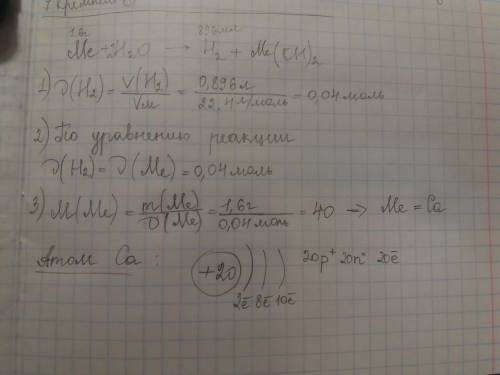 1,6г 896мл
Me + 2H₂O → H₂ + Me(OH)₂
1) ν(H₂) = V(H₂)/Vм = 0,896л/22,4л/моль = 0,04моль
2) По уравнению реакции
ν(H₂) = ν(Me) = 0,04моль
3) M(Me) = m(Me)/ν(Me) = 1,6г/0,04моль = 40 → Me = Ca
Атом Ca: +20 ) ) ) 20p⁺ 20n° 20ē
2ē 8ē 10ē